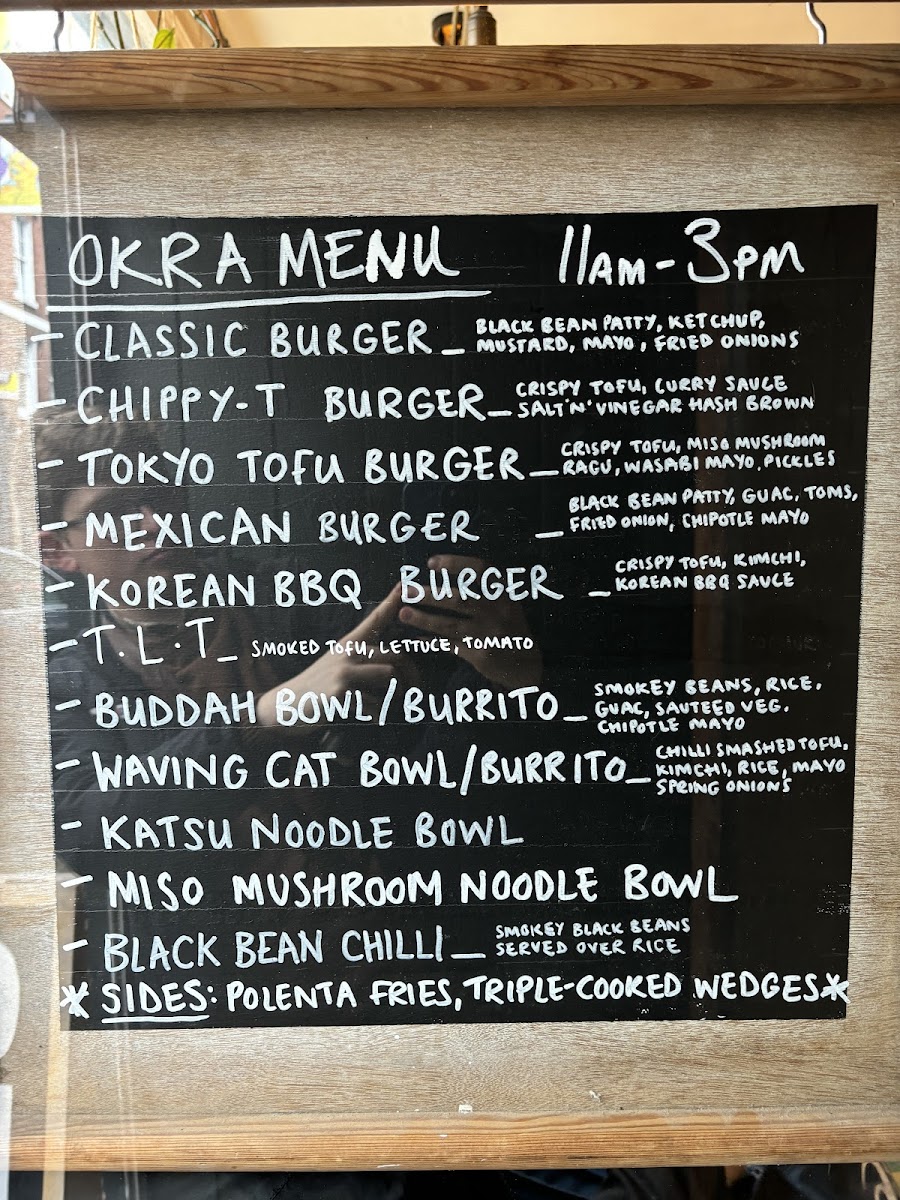 OKRA MENU 11AM-3PM
- CLASSIC BURGER_ BLACK BEAN PATTY, KETCHUP,
MUSTARD, MAYO, FRIED ONIONS
- CHIPPY-T BURGER_ CRISPY TOFU, CURRY SAUCE
SALT'N'VINEGAR HASH BROWN
- TOKYO TOFU BURGER_ CRISPY TOFU, MISO MUSHROOM
RAGU, WASABI MAYO, PICKLES
- MEXICAN BURGER _ BLACK BEAN PATTY, GUAC, TOMS,
FRIED ONION, CHIPOTLE MAYO
- KOREAN BBQ BURGER _ CRISPY TOFU, KIMCHI,
KOREAN BBQ SAUCE
- T.L.T_ SMOKED TOFU, LETTUCE, TOMATO
- BUDDAH BOWL/BURRITO_ SMOKEY BEANS, RICE,
GUAC, SAUTEED VEG.
CHIPOTLE MAYO
- WAVING CAT BOWL/BURRITO_ CHILLI SMASHED TOFU,
KIMCHI, RICE, MAYO
SPRING ONIONS
- KATSU NOODLE BOWL
- MISO MUSHROOM NOODLE BOWL
- BLACK BEAN CHILLI_ SMOKEY BLACK BEANS
SERVED OVER RICE
* SIDES: POLENTA FRIES, TRIPLE-COOKED WEDGES*